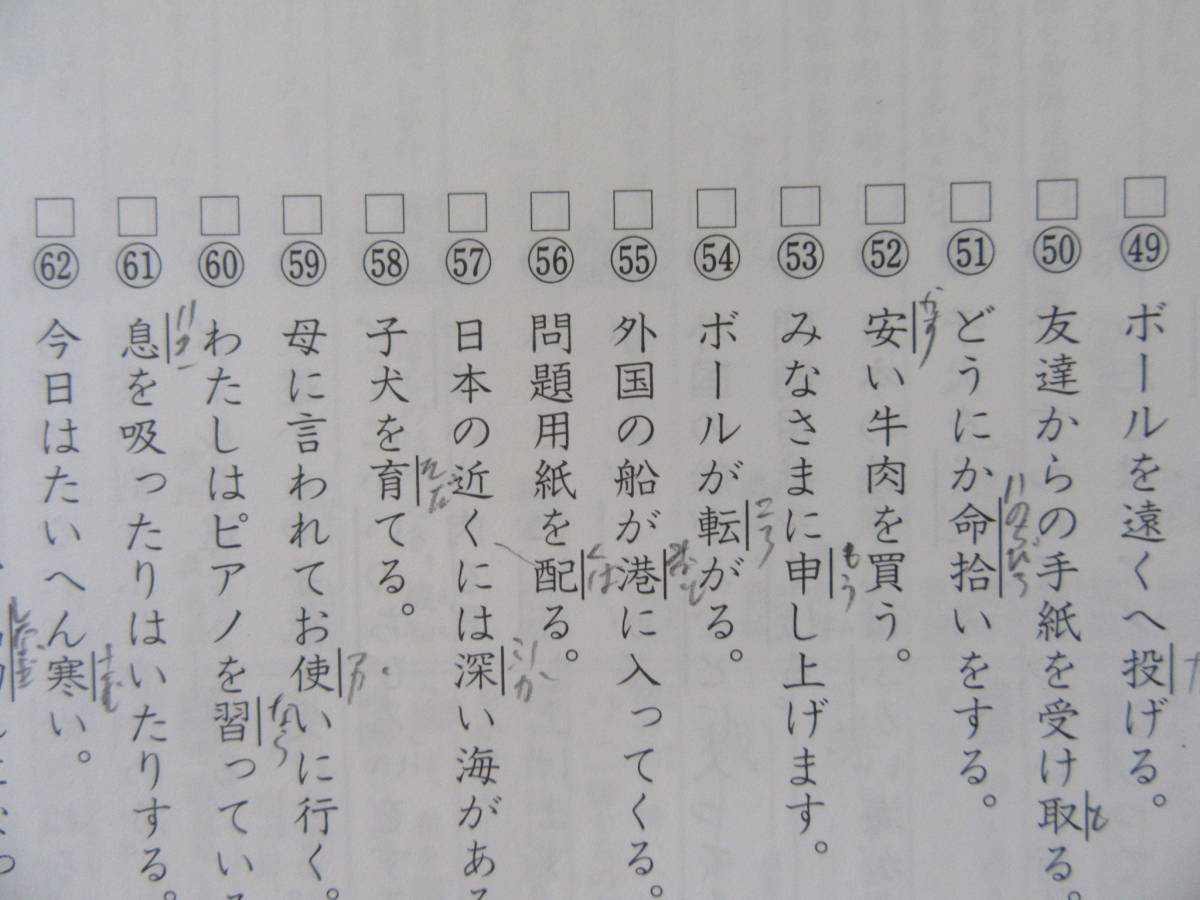 □㊾ボールを遠くへ投げる。
□㊿友達からの手紙を受け取る。
と
□51どうにか命拾いをする。
いのちびろ
□52安い牛肉を買う。
やす
□53みなさまに申し上げます。
もう
□54ボールが転がる。
ころ
□55外国の船が港に入ってくる。
みなと
□56問題用紙を配る。
くば
□57日本の近くには深い海がある
ふか
□58子犬を育てる。
そだ
□59母に言われてお使いに行く。
□60わたしはピアノを習ってい
なら
□61息を吸ったりはいたりする。
いき
□62今日はたいへん寒い。
さむ